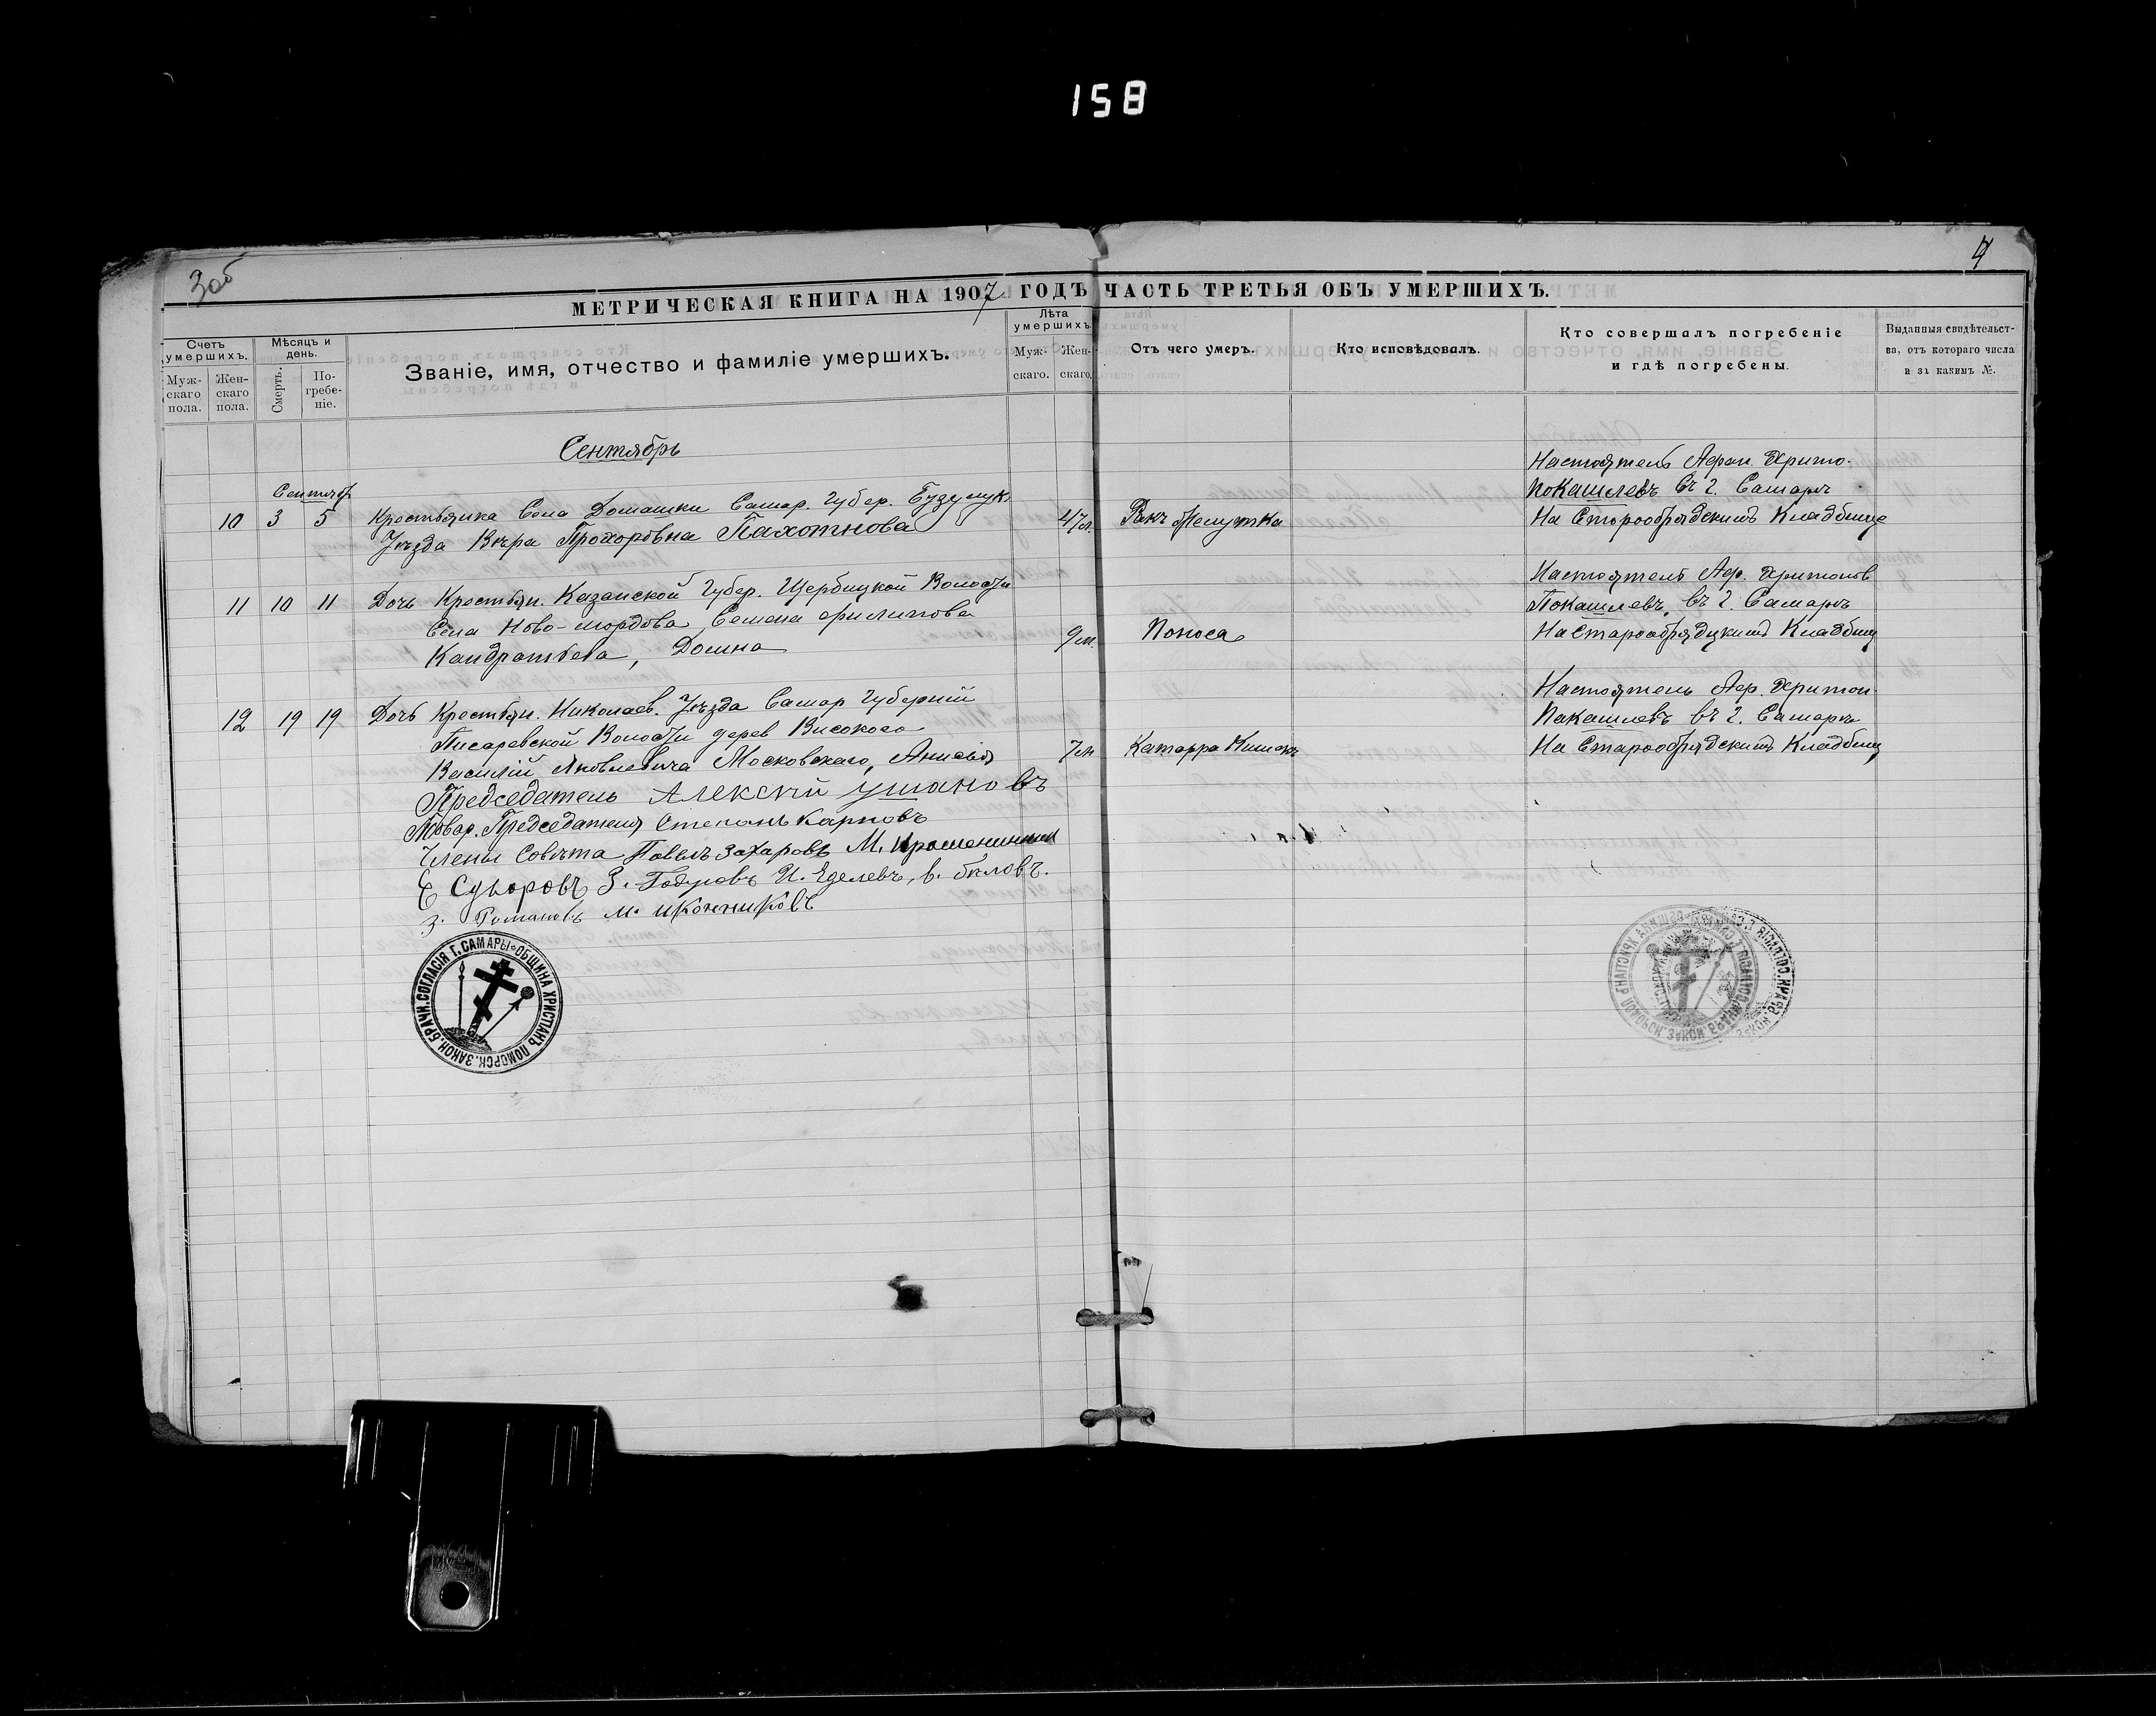 158
3об
4
МЕТРИЧЕСКАЯ КНИГА НА 1907 ГОДЪ ЧАСТЬ ТРЕТЬЯ ОБЪ УМЕРШИХЪ.
Счетъ умершихъ.
Мужскаго пола.
Женскаго пола.
Мѣсяцъ и день.
Смерть.
Погребеніе.
Званіе, имя, отчество и фамиліе умершихъ.
Лѣта умершихъ.
Мужскаго.
Женскаго.
Отъ чего умеръ.
Кто исповѣдовалъ.
Кто совершалъ погребеніе
и гдѣ погребены.
Выданныя свидѣтельст-
ва, отъ котораго числа
и за какимъ №.
Сентябрь
Сентябр
10 3 5 Крестьянка Села Домашки Самар. Губер. Бузулук.
Уѣзда Вѣра Прохоровна Пахотнова
47 л. Ракъ Желутка
Настоятель Афан. Харито.
Покашлевъ въ г. Самарѣ
На Старообрядскимъ Кладбище
11 10 11 Дочь Крестьян. Казанской Губер. Щербицкой Волости
Села Ново-мордова, Семена Филипова
Кандратьева, Домна
9 м. Поноса
Настоятель Аф. Харитонов
Покашлевъ, въ г. Самарѣ
На Старообрядцкимъ Кладбищ
12 19 19 Дочь Крестьян. Николаев. Уѣзда Самар Губерній
Писаревской Волости дерев Високого
Василій Яковлевича Московскаго, Анисія
7 м Катарра Кишекъ
Настоятель Аф. Харитон
Пакашлевъ въ г. Самарѣ
На Старообрядскимъ Кладбищ
Председатель Алексѣй Ушаковъ
Товар. Председателя Степанъ Карповъ
Члены Совѣта Павелъ Захаровъ М. Крашенинни
Е Суворовъ З. Годуровъ И. Еделевъ, В. Быловъ.
З. Романовъ М. Иконниковъ
ОБЩИНА ХРИСТІАНЪ ПОМОРСК. ЗАКОН. БРАЧН. СОГЛАСІЯ Г. САМАРЫ